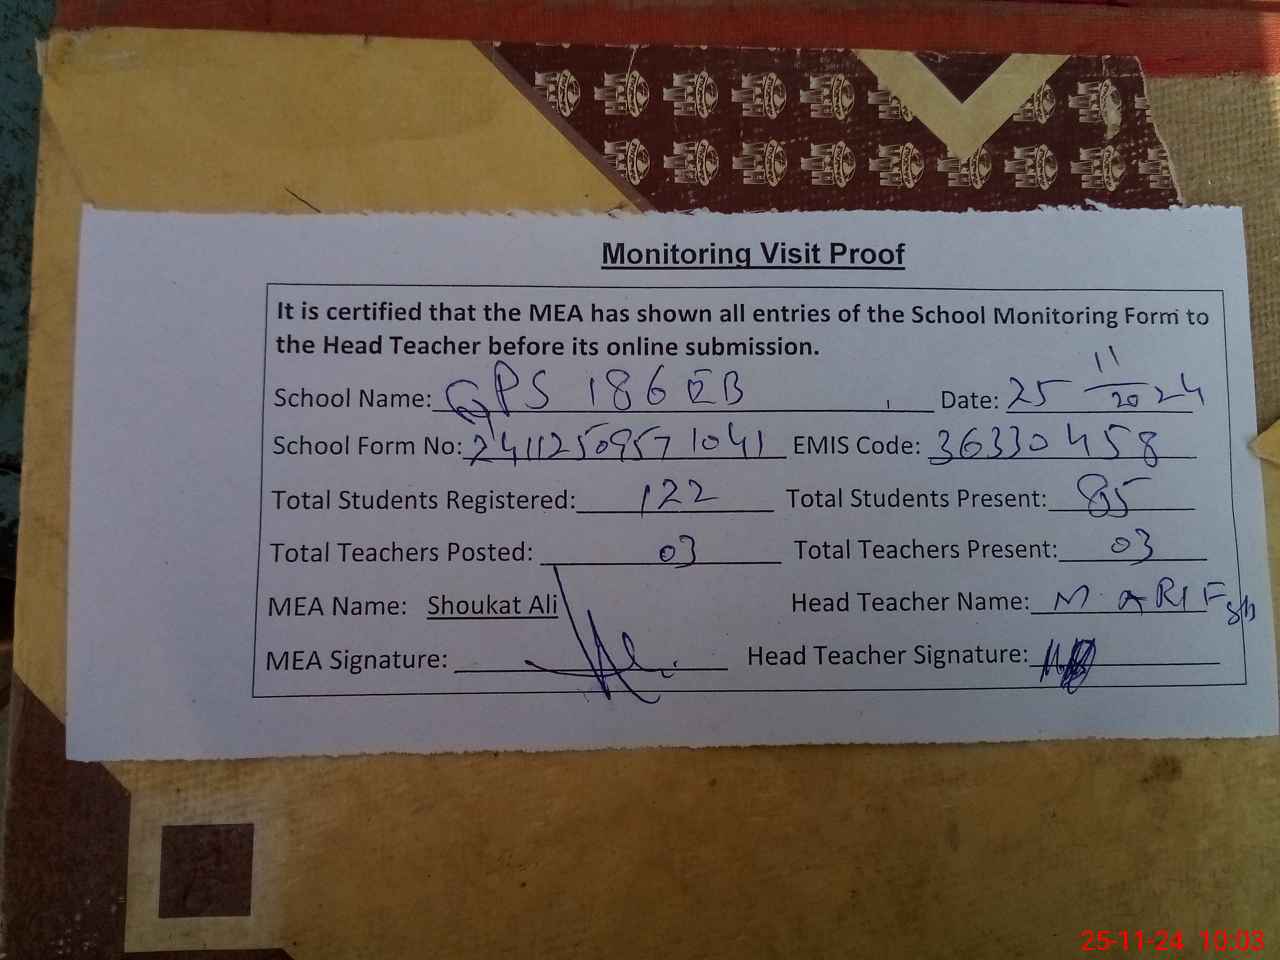 Monitoring Visit Proof
It is certified that the MEA has shown all entries of the School Monitoring Form to
the Head Teacher before its online submission.
School Name: GPS 186 EB Date: 25 11/2024
School Form No: 24112509571041 EMIS Code: 36330458
Total Students Registered: 122 Total Students Present: 85
Total Teachers Posted: 03 Total Teachers Present: 03
MEA Name: Shoukat Ali Head Teacher Name: M. ARIF
MEA Signature: Head Teacher Signature:
25-11-24 10:03